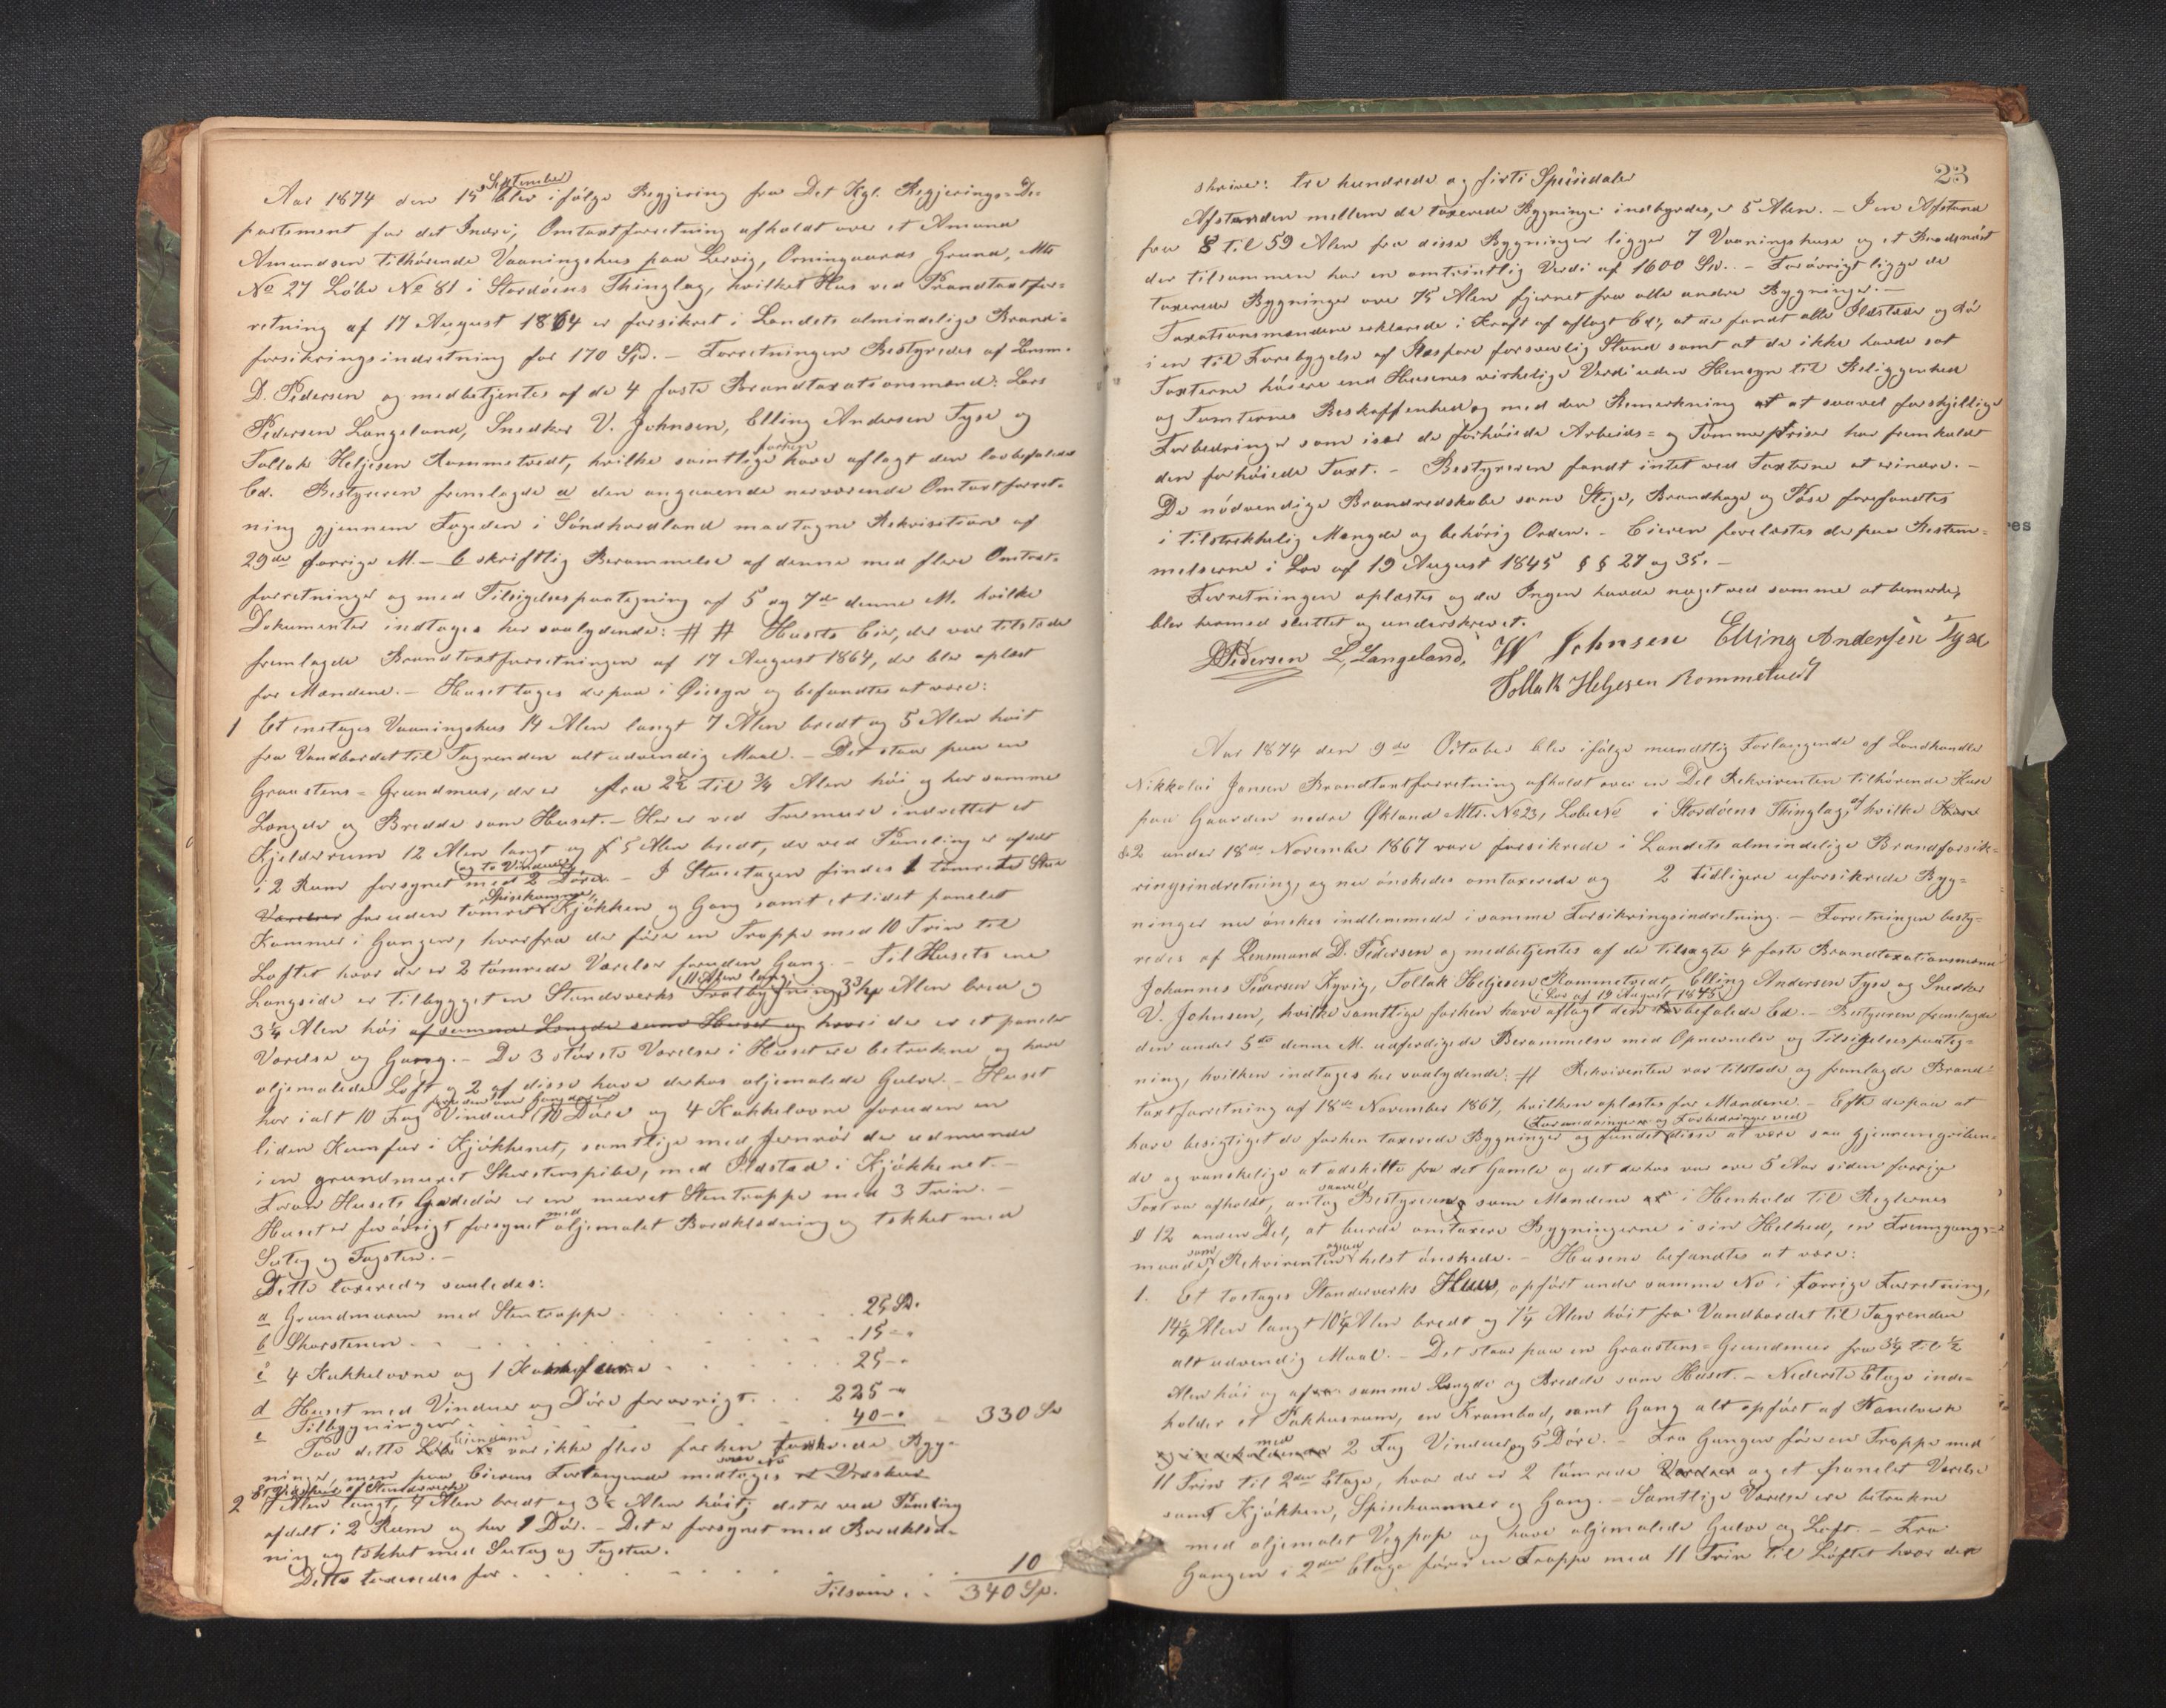 Aar 1874 den 15 September blev ifølge Begjæring fra Det Kgl. Regjerings-De-
partement for det Indre, Omtaxtforretning afholdt over et Amund
Amundsen tilhörende Vaaningshus paa Lervig, Orninggaards Grund, Mtr
No 27 Löbe No 81 i Stordöens Thinglag, hvilket Hus ved Brandtaxtfor-
retning af 17 August 1864 er forsikret i Landets almindelige Brand-
forsikringsindretning for 170 Spd. - Forretningen Bestyredes af Lensm.
D. Pedersen og medbetjentes af de 4 faste Brandtaxationsmænd: Lars
Pedersen Langeland, Snedker V. Johnsen, Elling Andersen Tyse og
Tollak Heljesen Rommetvedt, hvilke samtlige forhen have aflagt den lovbefalede
Ed. Bestyreren fremlagde a den angaaende nærværende Omtaxtforret-
ning gjennem Fogeden i Söndhordland modtagne Rekvisition af
29de forrige M. - b skriftlig Berammelse af denne med flere Omtaxt-
forretninger og med Tilsigelsespaategning af 5 og 7de denne M. hvilke
Dokumenter indtages her saalydende: # # Husets Eier, der var tilstede
fremlagde Brandtaxtforretningen af 17 August 1864, der blev oplæst
for Mændene. - Huset toges derpaa i Öiesyn og befandtes at være:
1 Et enetages Vaaningshus 14 Alen langt 7 Alen bredt og 5 Alen høit
fra Vandbordet til Tagrenden alt udvendig Maal. - Det staar paa en
Graastens-Grundmur, der er fra 2½ til ¾ Alen höi og har samme
Længde og Bredde som Huset. - Her er ved Tvermure indrettet et
Kjelderrum 12 Alen langt og 5 Alen bredt, der ved Paneling er afdelt
i 2 Rum forsynet med 2 Döre og to Vinduer. - I Stueetagen findes 1 tømrede Stue
Værelser foruden tømret Spisekammer, Kjökken og Gang samt et lidet panelet
Kammer i Gangen, hvorfra der förer en Trappe med 10 Trin til
Loftet hvor der er 2 tömrede Værelser foruden Gang. - Til Husets ene
Langside er tilbygget en Standsverks Svalbygning 11 Alen lang, 3¾ Alen bred og
3¼ Alen höi af samme Længde som Huset og hvori der er et panelet
Værelse og Gang. - De 3 største Værelser i Huset ere betrukne og have
oljemalede Loft og 2 af disse have derhos oljemalede Gulve. - Huset
har ialt 10 Fag Vinduer 10 Döre og 4 Kakkelovne foruden en
liden Komfur i Kjökkenet, samtlige med Jernrör der udmunde
i en grundmuret Skorstenspibe, med Ildsted i Kjökkenet. -
Foran Husets Gadedör er en muret Stentrappe med 3 Trin. -
Huset er forövrigt forsynet med oljemalet Bordklædning og tækket med
Sutag og Tagsten. -
Dette taxeredes saaledes:
a Grundmuren med Stentrappe . . . 25 Sp.
b Skorstenen . . . 15 - "
c 4 Kakkelovne og 1 Komfur . . . 25 - "
d Huset med Vinduer og Döre forövrigt . . . 225 - "
e Tilbygningen . . . 40 - " 330 Sp
Paa dette Löbe No Eiendom var ikke flere forhen forsikrede Byg-
ninger, men paa Eierens Forlangende medtages som No
2 Et Vaskehus af Standsverk 7 Alen langt, 4 Alen bredt og 3½ Alen höit; det er ved Paneling
afdelt i 2 Rum og har 1 Dör. - Det er forsynet med Bordklæd-
ning og tækket med Sutag og Tagsten.
Dette taxeredes for . . . 10
Tilsam. . . 340 Sp.
23
skriver: tre hundrede og firti Speciedaler
Afstanden mellem de taxerede Bygninger indbyrdes, er 5 Alen. - I en Afstand
fra 8 til 59 Alen fra disse Bygninger ligger 7 Vaaningshuse og et Baadenöst
der tilsammen har en omtrintlig Verdi af 1600 Spd. - Forövrigt ligge de
taxerede Bygninger over 75 Alen fjernet fra alle andre Bygninger. -
Taxationsmændene erklærede i Kraft af aflagt Ed, at de fandt alle Ildsteder og Rör
i en til Forebyggelse af Ildsfare forsvarlig Stand samt at de ikke havde sat
Taxterne höiere end Husenes virkelige Verdi uden Hensyn til Beliggenhed
og Tomternes Beskaffenhed og med den Bemerkning at saavel forskjellige
Forbedringer som især de forhöiede Arbeids- og Tömmerpriser har fremkaldt
den forhöiede Taxt. - Bestyreren fandt intet ved Taxterne at erindre. -
De nödvendige Brandredskaber som Stige, Brandhage og Pöse forefandtes
i tilstrekkelig Mængde og behörig Orden. - Eieren forelæstes derpaa Bestem-
melserne i Lov af 19 August 1845 § § 27 og 35. -
Forretningen oplæstes og da Ingen havde noget ved samme at bemerke,
blev hermed sluttet og underskrevet.
D Pedersen L, Langeland, W Johnsen Elling Andersen Tyse
Tollak Heljesen Rommetvedt
Aar 1874 den 9de October blev ifølge mundtlig Forlangende af Landhandler
Nikkolai Jansen Brandtaxtforretning afholdt over en Del Rekvirenten tilhörende Huse
paa Gaarden nedre Økland Mtr. No 23, Löbe No i Stordöens Thinglag, af hvilke Huse
de 2 under 18de November 1867 vare forsikrede i Landets almindelige Brandforsik-
ringsindretning, og nu önskedes omtaxerede og 2 tidligere uforsikrede Byg-
ninger nu önskes indlemmede i samme Forsikringsindretning. - Forretningen besty-
redes af Lensmand D. Pedersen og medbetjentes af de tilsagte 4 faste Brandtaxationsmænd
Johannes Pedersen Kyvig, Tollak Heljesen Rommetvedt, Elling Andersen Tyse og Snedker
V. Johnsen, hvilke samtlige forhen have aflagt den i Lov af 19 August 1845 befalede Ed. - Bestyreren fremlagde
den under 5te denne M. udferdigede Berammelse med Opnevnelse og Tilsigelsespaateg-
ning, hvilken indtages her saalydende: # Rekvirenten var tilstede og fremlagde Brand-
taxtforretning af 18de November 1867, hvilken oplæstes for Mændene. - Efter derpaa at
have besigtiget de forhen taxerede Bygninger og fundet Forandringer og Forbedringer ved disse at være saa gjennemgriben-
de og vanskelige at adskille fra det Gamle og det derhos var over 5 Aar siden forrige
Taxt var afholdt, antog saavel Bestyreren som Mændene i Henhold til Reglernes
§ 12 anden Del, at burde omtaxere Bygningerne i sin Helhed, en Fremgangs-
maade som Rekvirenten ogsaa helst önskede. - Husene befandtes at være:
1. Et toetages Standsverks Huus, opfört under samme No i forrige Forretning,
14¼ Alen langt 10¼ Alen bredt og 7¼ Alen höit fra Vandbordet til Tagrenden
alt udvendig Maal. - Det staar paa en Graastens-Grundmur fra 3¼ til ½
Alen höi og af samme Længde og Bredde som Huset. - Nederste Etage inde-
holder et Pakhusrum, en Krambod, samt Gang alt opfört af Standverk
med 2 Fag Vinduer og 5 Döre. - Fra Gangen förer en Trappe med
11 Trin til 2den Etage, hvor der er 2 tömrede Værelser og et panelet Værelse
samt Kjökken, Spisekammer og Gang. - Samtlige Værelser ere betrukne
med oljemalet Vegpap og have oljemalede Gulve og Loft. - Fra
Gangen i 2den Etage förer en Trappe med 11 Trin til Loftet hvor der